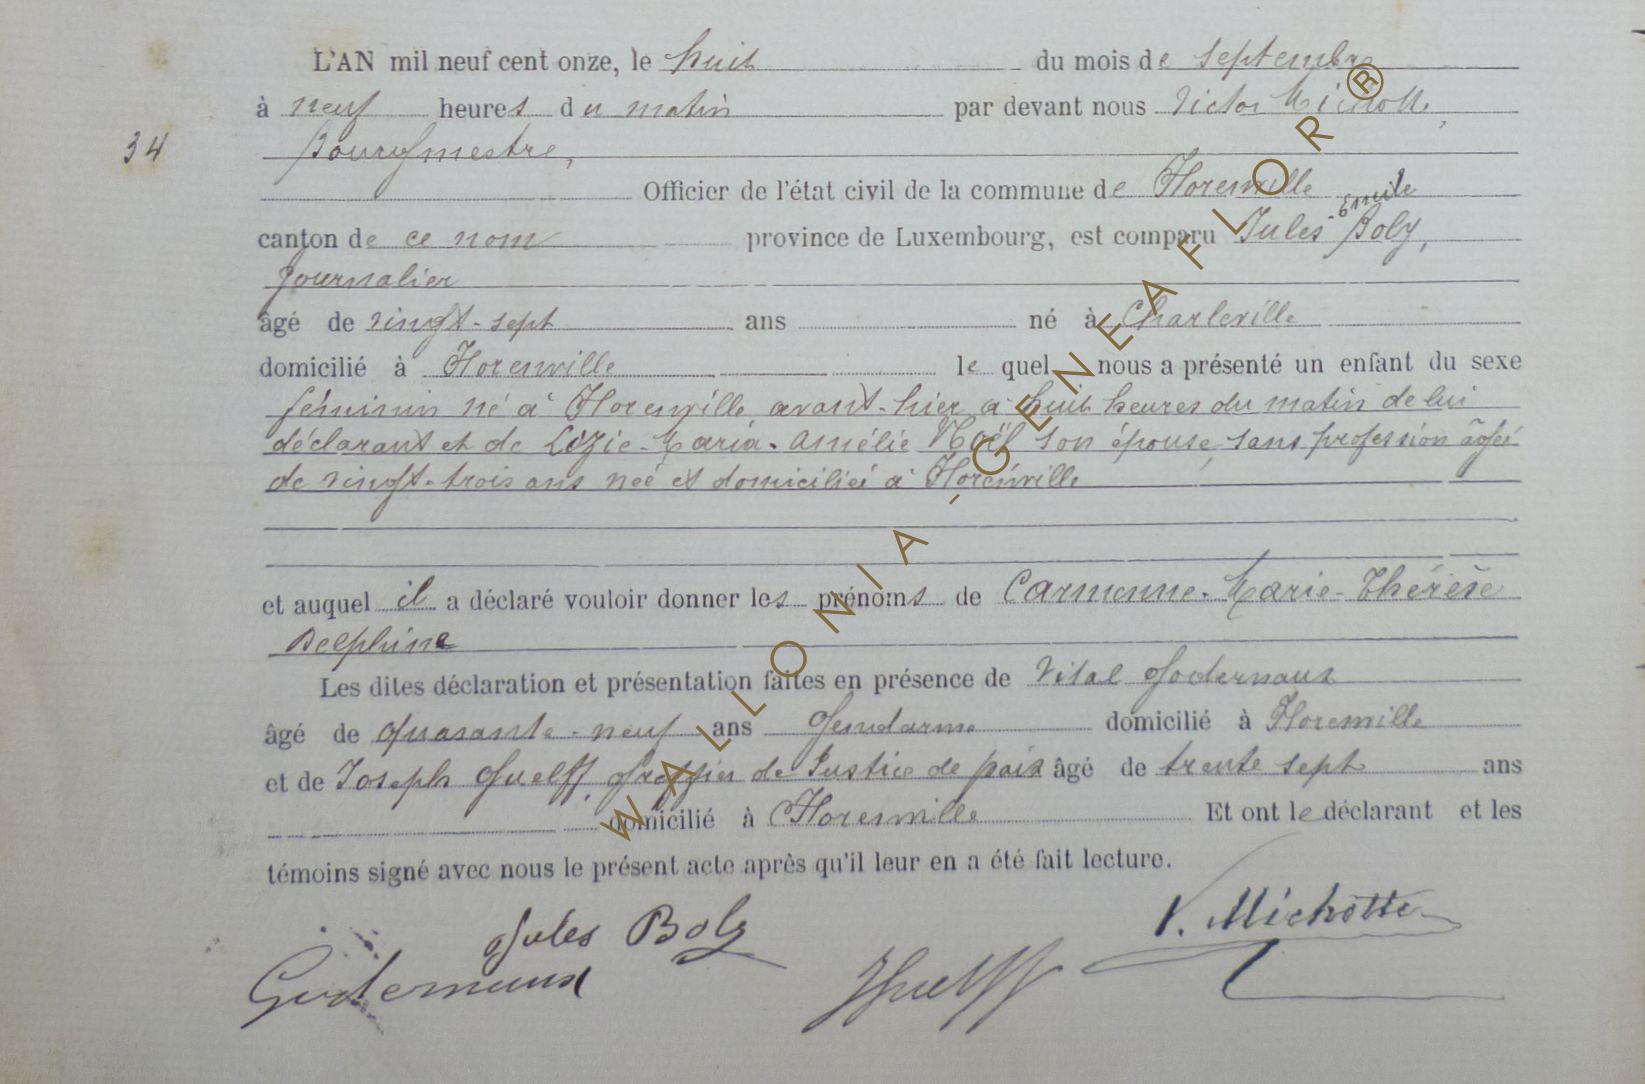 L'AN mil neuf cent onze, le huit du mois de septembre
à neuf heures du matin par devant nous Victor Michotte,
34
Bourgmestre,
Officier de l'état civil de la commune de Florenville
Emile
canton de ce nom province de Luxembourg, est comparu Jules Boly,
journalier
âgé de vingt-sept ans né à Charleville
domicilié à Florenville le quel nous a présenté un enfant du sexe
féminin né à Florenville avant-hier à huit heures du matin de lui
déclarant et de Lézie-Maria-Amélie Noël son épouse, sans profession âgée
de vingt-trois ans née et domiciliée à Florenville
et auquel il a déclaré vouloir donner les prénoms de Carmenne-Marie-Thérèse
Delphine
Les dites déclaration et présentation faites en présence de Vital Godernaux
âgé de quarante-neuf ans Gendarme domicilié à Florenville
et de Joseph Guelff, Greffier de Justice de paix âgé de trente sept ans
domicilié à Florenville Et ont le déclarant et les
témoins signé avec nous le présent acte après qu'il leur en a été fait lecture.
Jules Boly
V. Michotte
Godernaux
JGuelff
WALLONIA-GENEAFLOR®